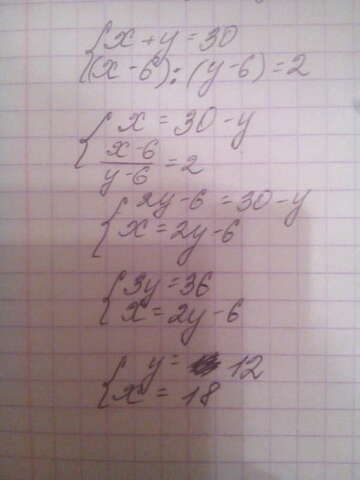 {x + y = 30
(x - 6) : (y - 6) = 2
{x = 30 - y
x - 6
y - 6 = 2
{2y - 6 = 30 - y
x = 2y - 6
{3y = 36
x = 2y - 6
{y = 12
x = 18